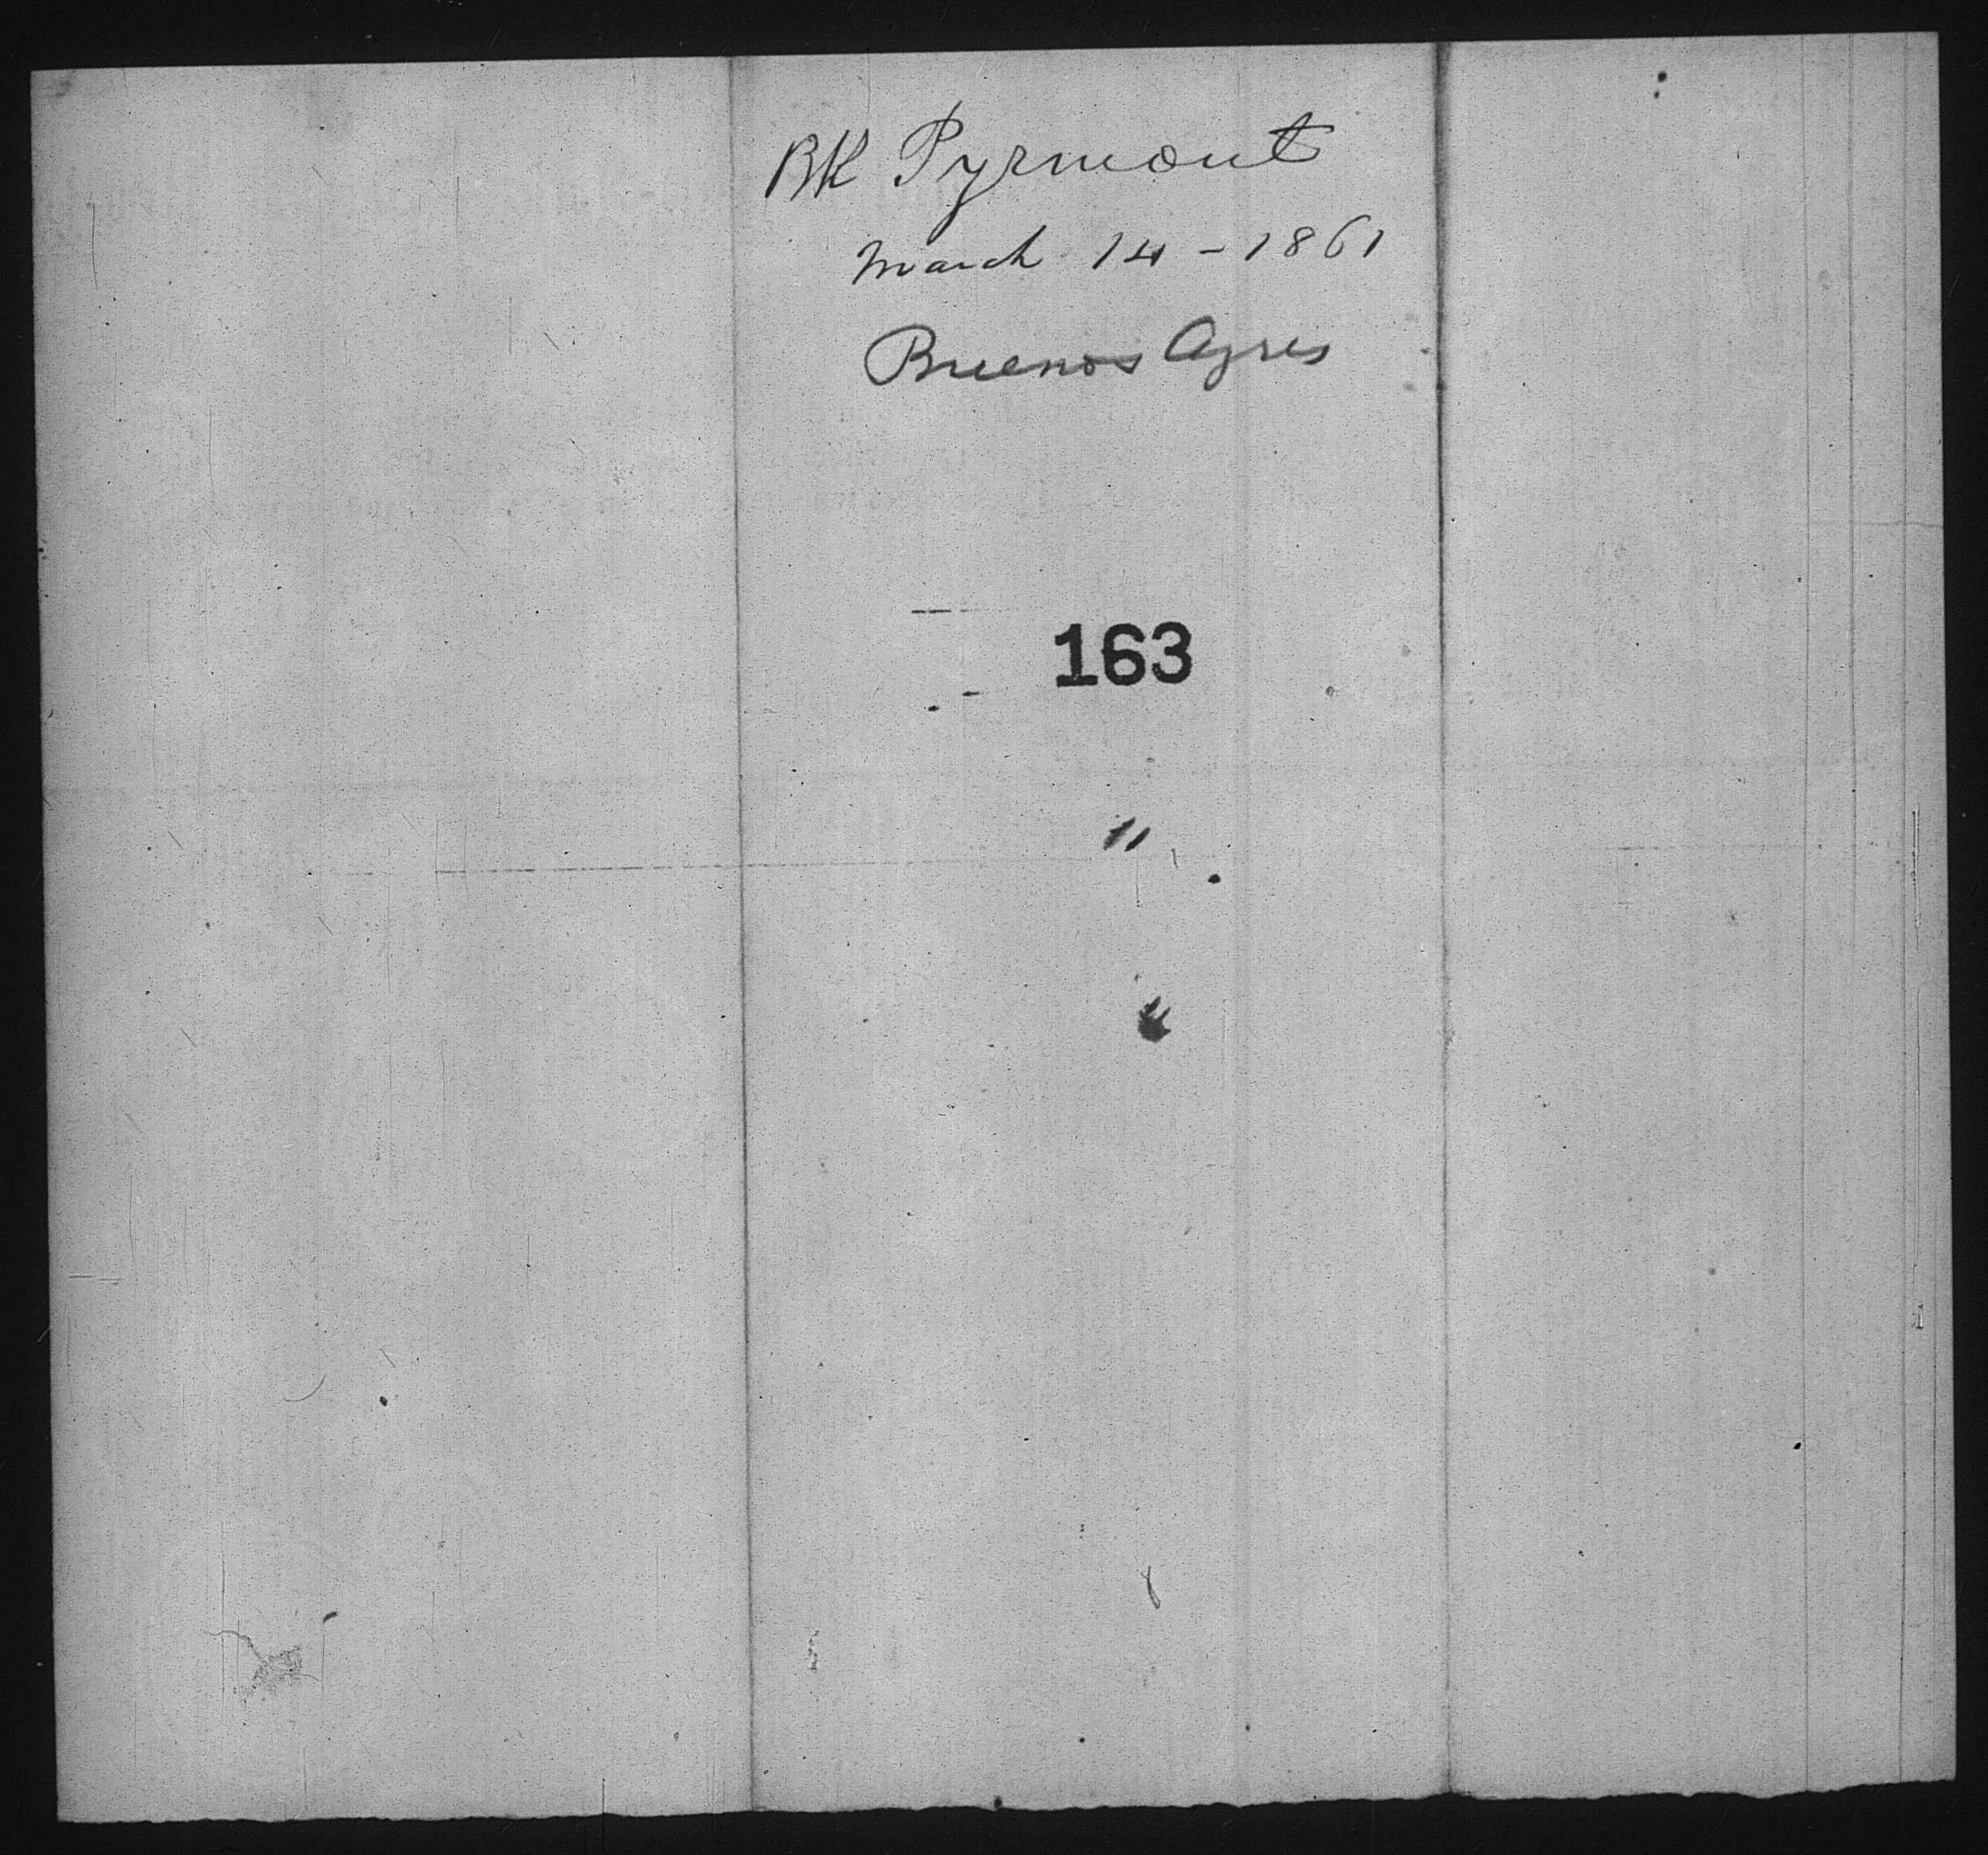 BK Pyrmont
March 14 - 1861
Buenos Ayres
163